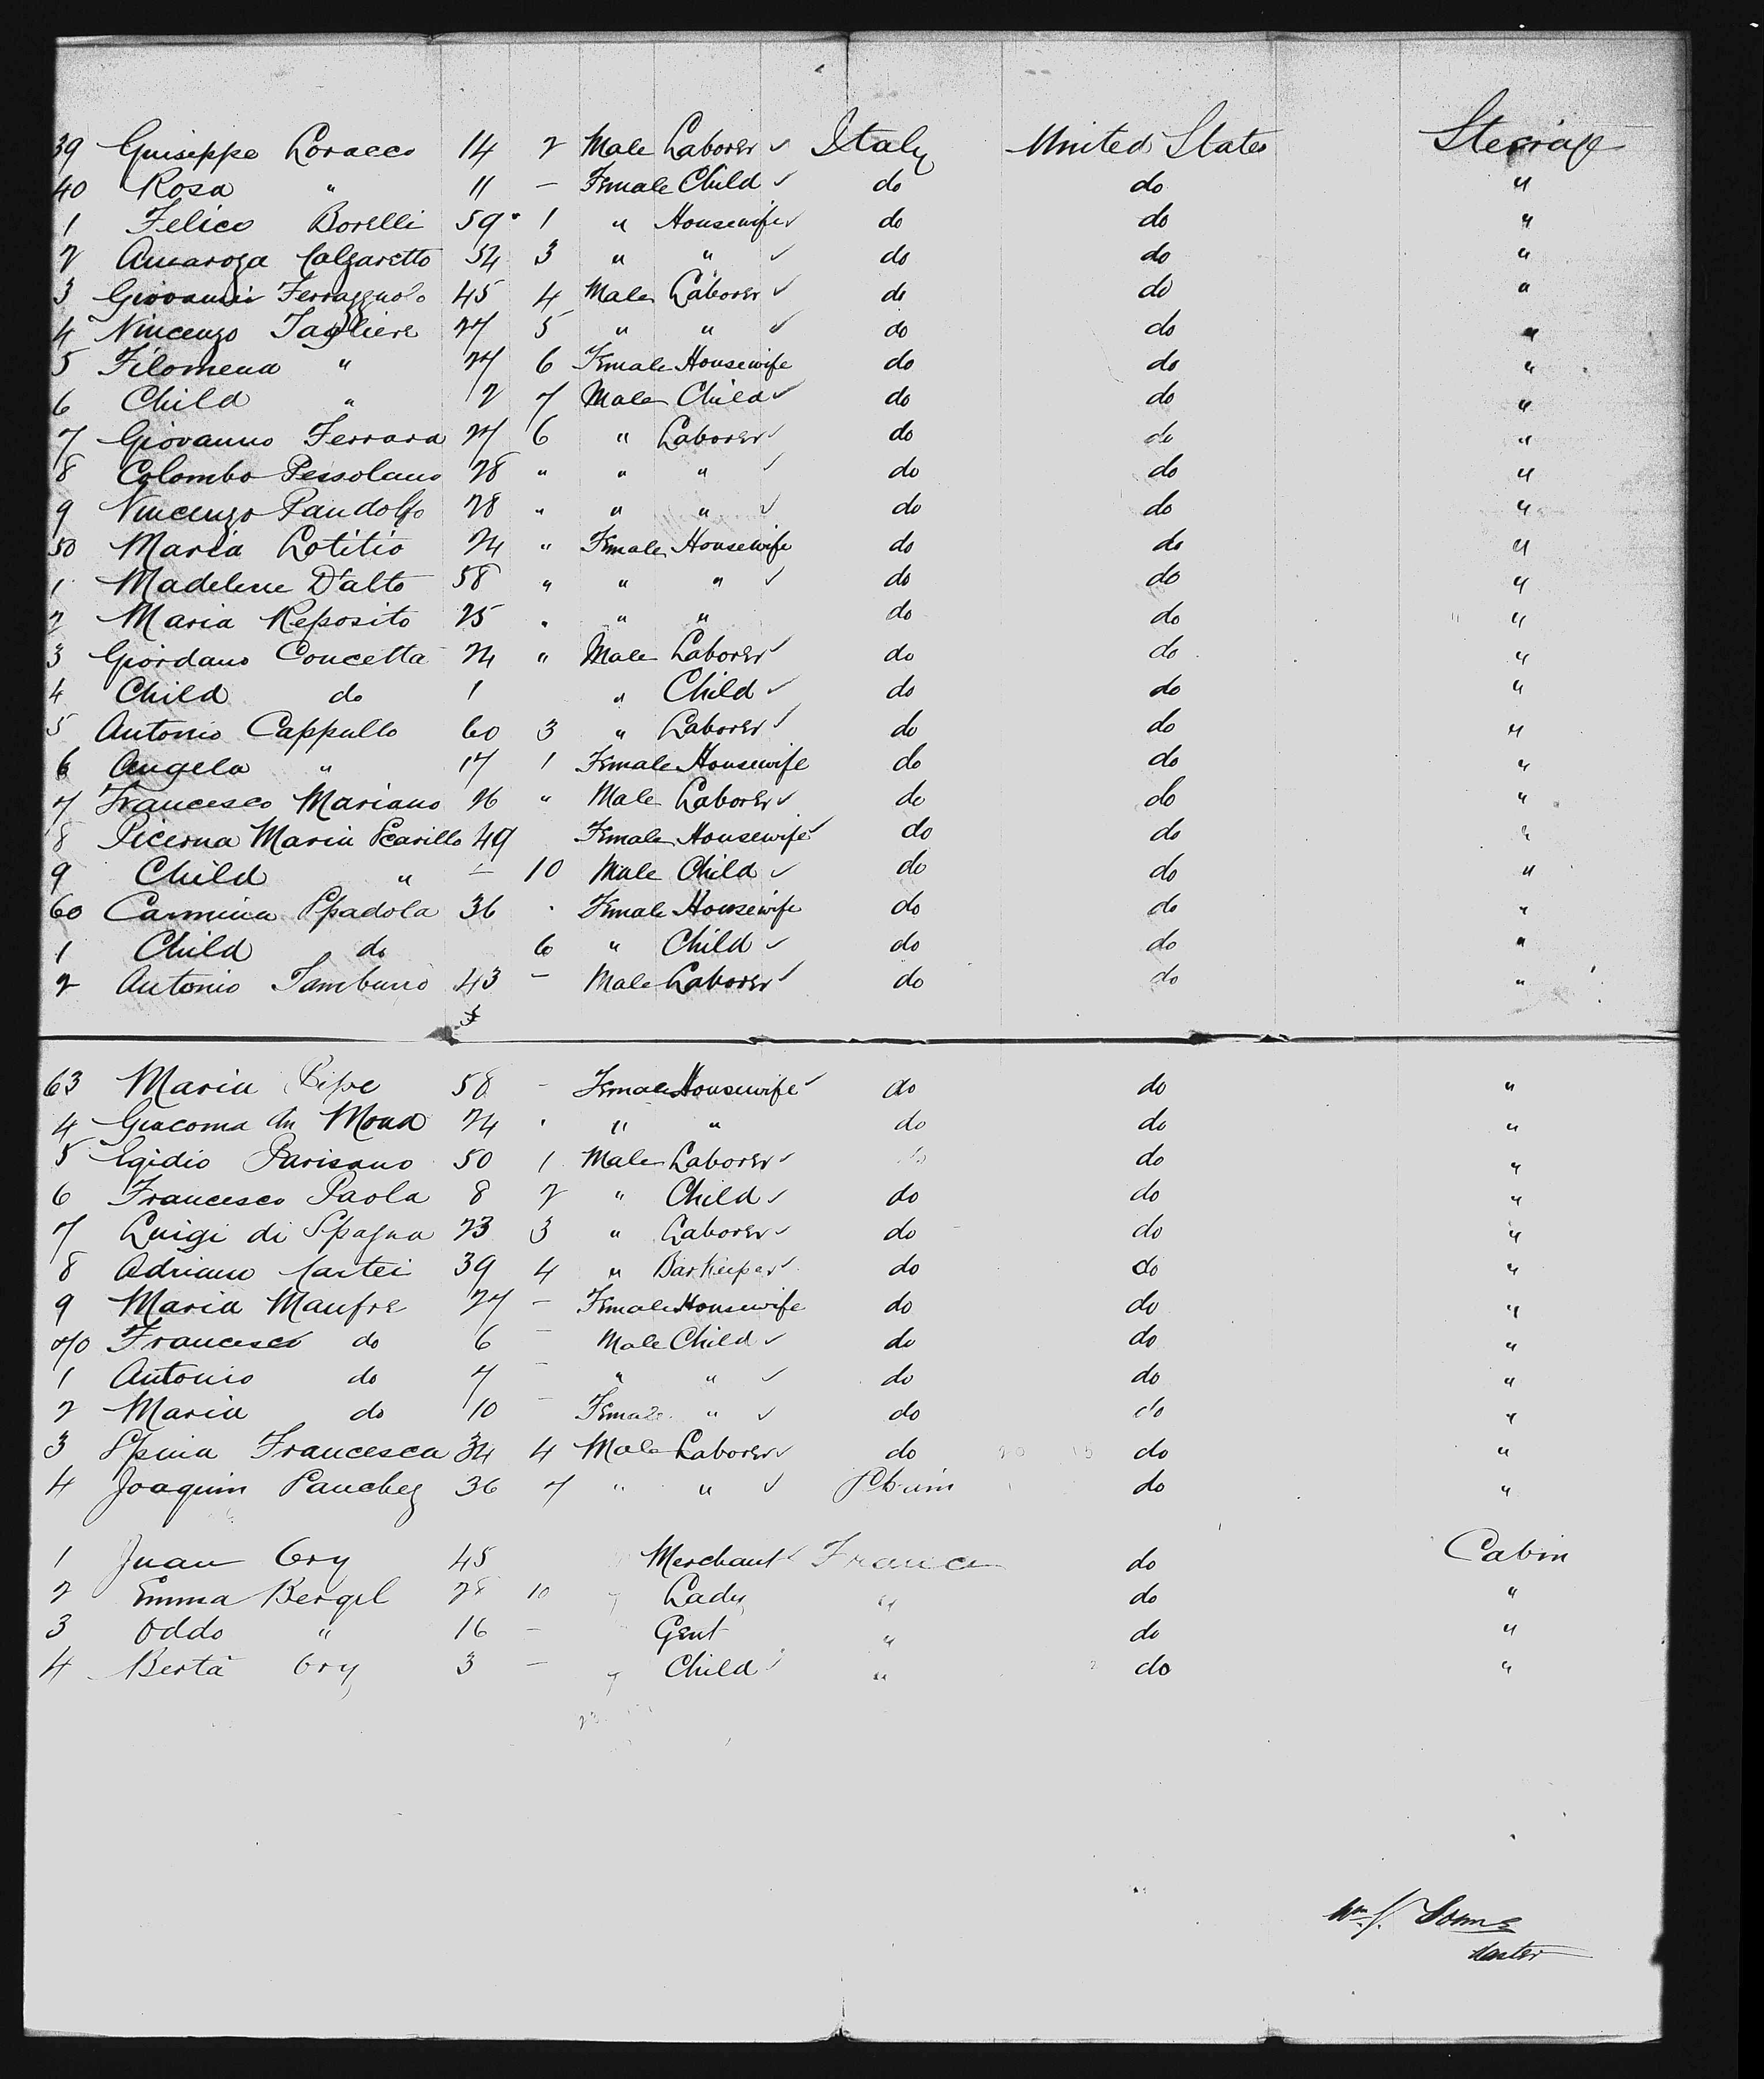 39 Guiseppe Loracco 14 2 Male Laborer ✓ Italy United States Steerage
40 Rosa " 11 – Female Child ✓ do do "
1 Felice Borelli 59 1 " Housewife ✓ do do "
2 Amaroza Calgaretto 54 3 " " ✓ do do "
3 Giovanni Ferraggnolo 45 4 Male Laborer ✓ do do "
4 Vincenzo Tagliere 27 5 " " ✓ do do "
5 Filomena " 27 6 Female Housewife do do "
6 Child " 2 7 Male Child ✓ do do "
7 Giovanno Ferrara 27 6 " Laborer ✓ do do "
8 Colombo Pessolano 28 " " " ✓ do do "
9 Vincenzo Pandolfo 28 " " " ✓ do do "
50 Maria Lotitio 24 " Female Housewife do do "
1 Madelene D'alto 58 " " " ✓ do do "
2 Maria Reposito 25 " " " do do "
3 Giordano Concetta 24 " Male Laborer ✓ do do "
4 Child do 1 " Child ✓ do do "
5 Antonio Cappullo 60 3 " Laborer ✓ do do "
6 Angela " 17 1 Female Housewife do do "
7 Francesco Mariano 26 " Male Laborer ✓ do do "
8 Picerna Maria Scarillo 49 Female Housewife ✓ do do "
9 Child " – 10 Male Child ✓ do do "
60 Carmina Spadola 36 " Female Housewife do do "
1 Child do 6 " Child ✓ do do "
2 Antonio Tamburio 43 – Male Laborer ✓ do do "
63 Maria Pipe 58 – Female Housewife ✓ do do "
4 Giacoma Mona 24 " " " do do "
5 Egidio Parisano 50 1 Male Laborer ✓ do do "
6 Francesco Paola 8 2 " Child ✓ do do "
7 Luigi di Spagna 23 3 " Laborer ✓ do do "
8 Adriano Cartei 39 4 " Barkeeper ✓ do do "
9 Maria Manfre 27 – Female Housewife do do "
70 Francesco do 6 – Male Child ✓ do do "
1 Antonio do 7 – " " ✓ do do "
2 Maria do 10 – Female " ✓ do do "
3 Spina Francesca 34 4 Male Laborer ✓ do do "
4 Joaquin Sanchez 36 7 " " ✓ do "
1 Juan Ory 45 Merchant ✓ France do Cabin
2 Emma Bergel 28 10 Lady " do "
3 Oddo " 16 – Gent " do "
4 Berta Ory 3 – Child " do "
Wm J.
Master